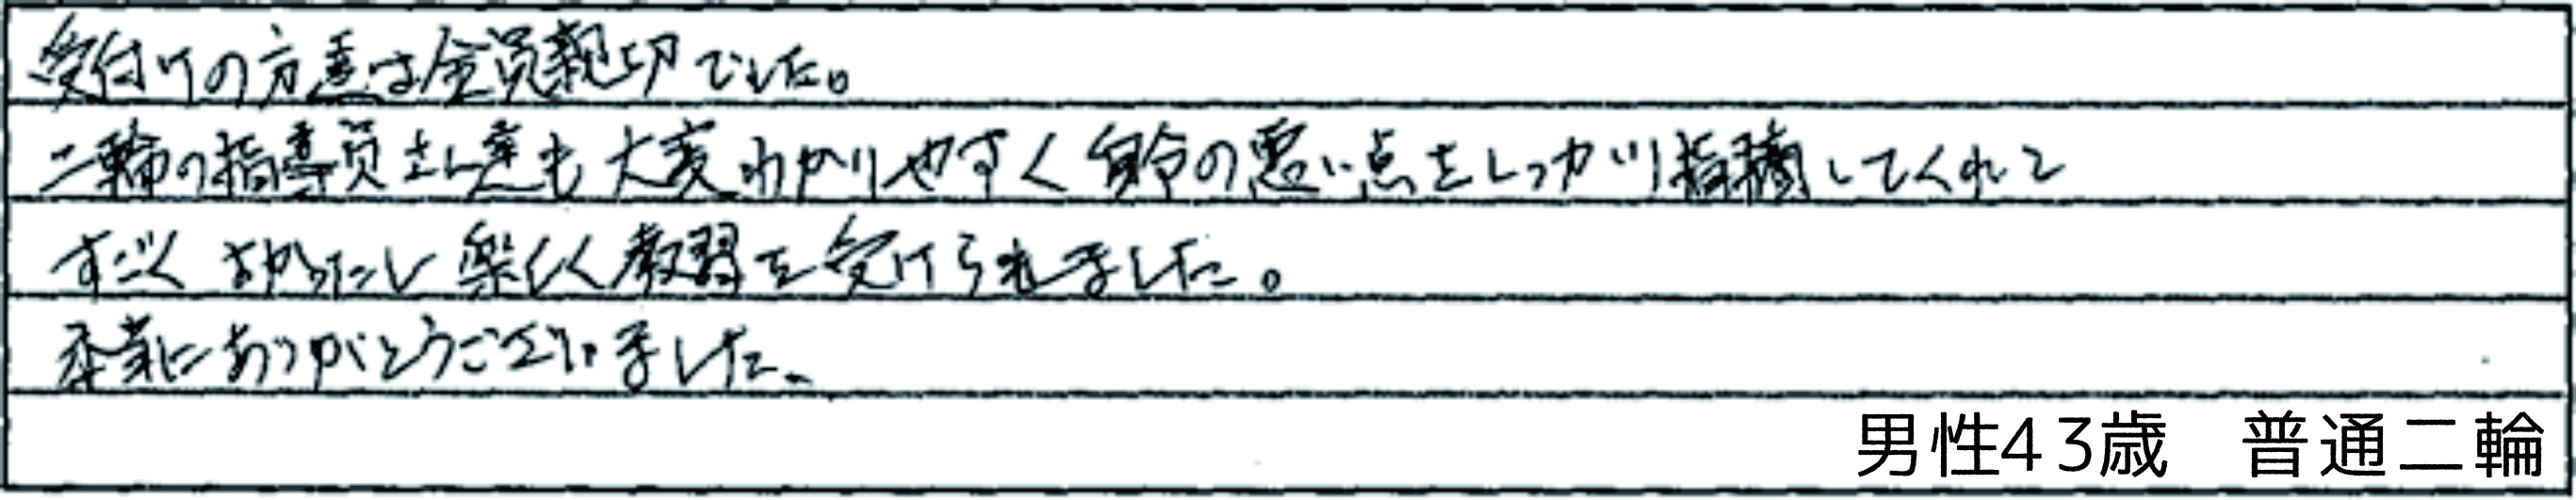 受付けの方達は全員親切でした。
二輪の指導員さん達も大変わかりやすく自分の悪い点をしっかり指摘してくれて
すごくよかったし楽しく教習を受けられました。
本当にありがとうございました。
男性43歳 普通二輪